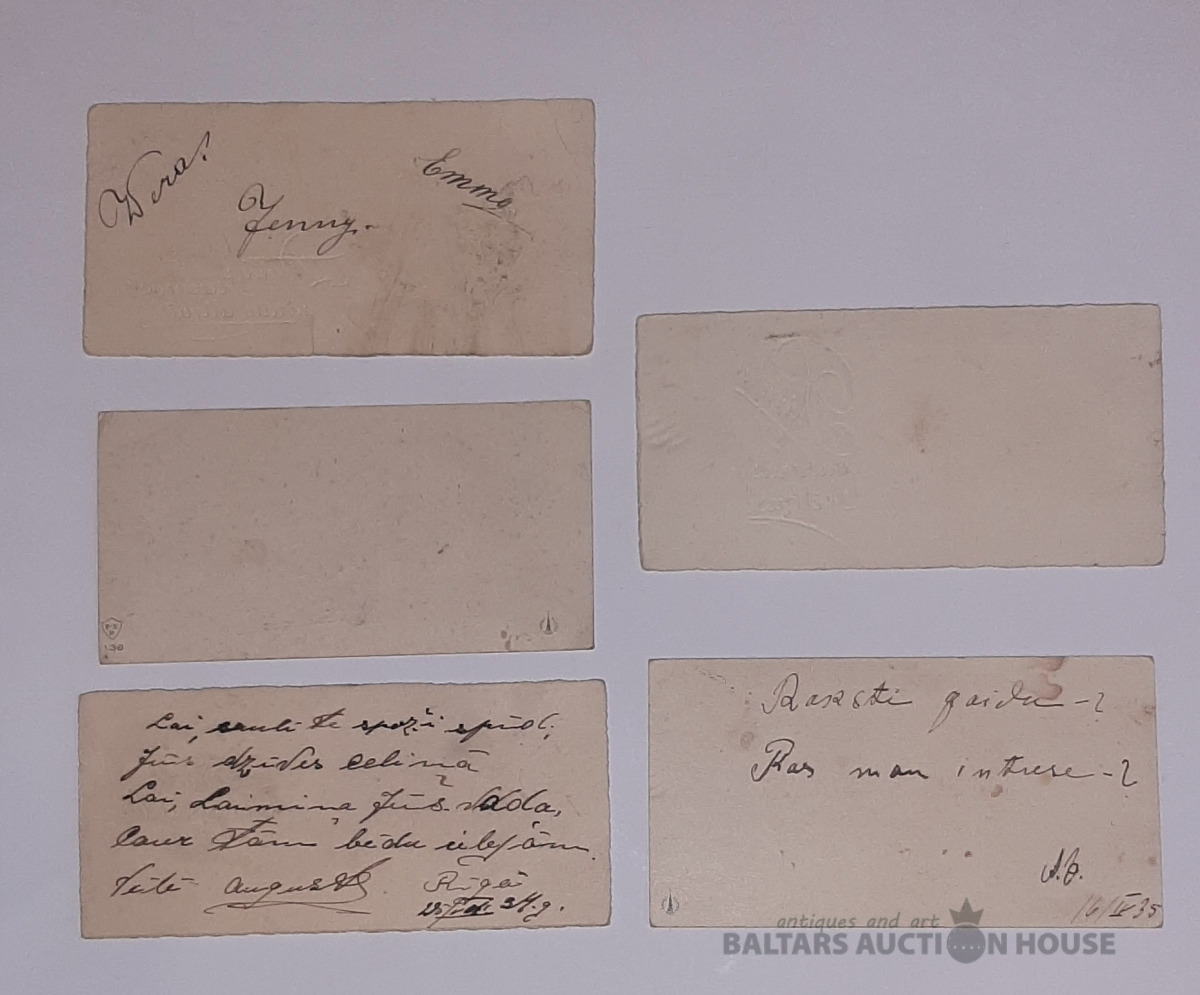 Wera!
Jenny.
Emma
136
Lai, saulīte spoži spīd,
Jūs dzīves celiņā
Lai, Laimiņa Jūs vada,
Caur tām bēdu ielejām.
August
Rīgā
34.g.
Raksti gaidu -?
Kas man intrese -?
A.J.
16/IV 35
antiques and art
BALTARS AUCTION HOUSE